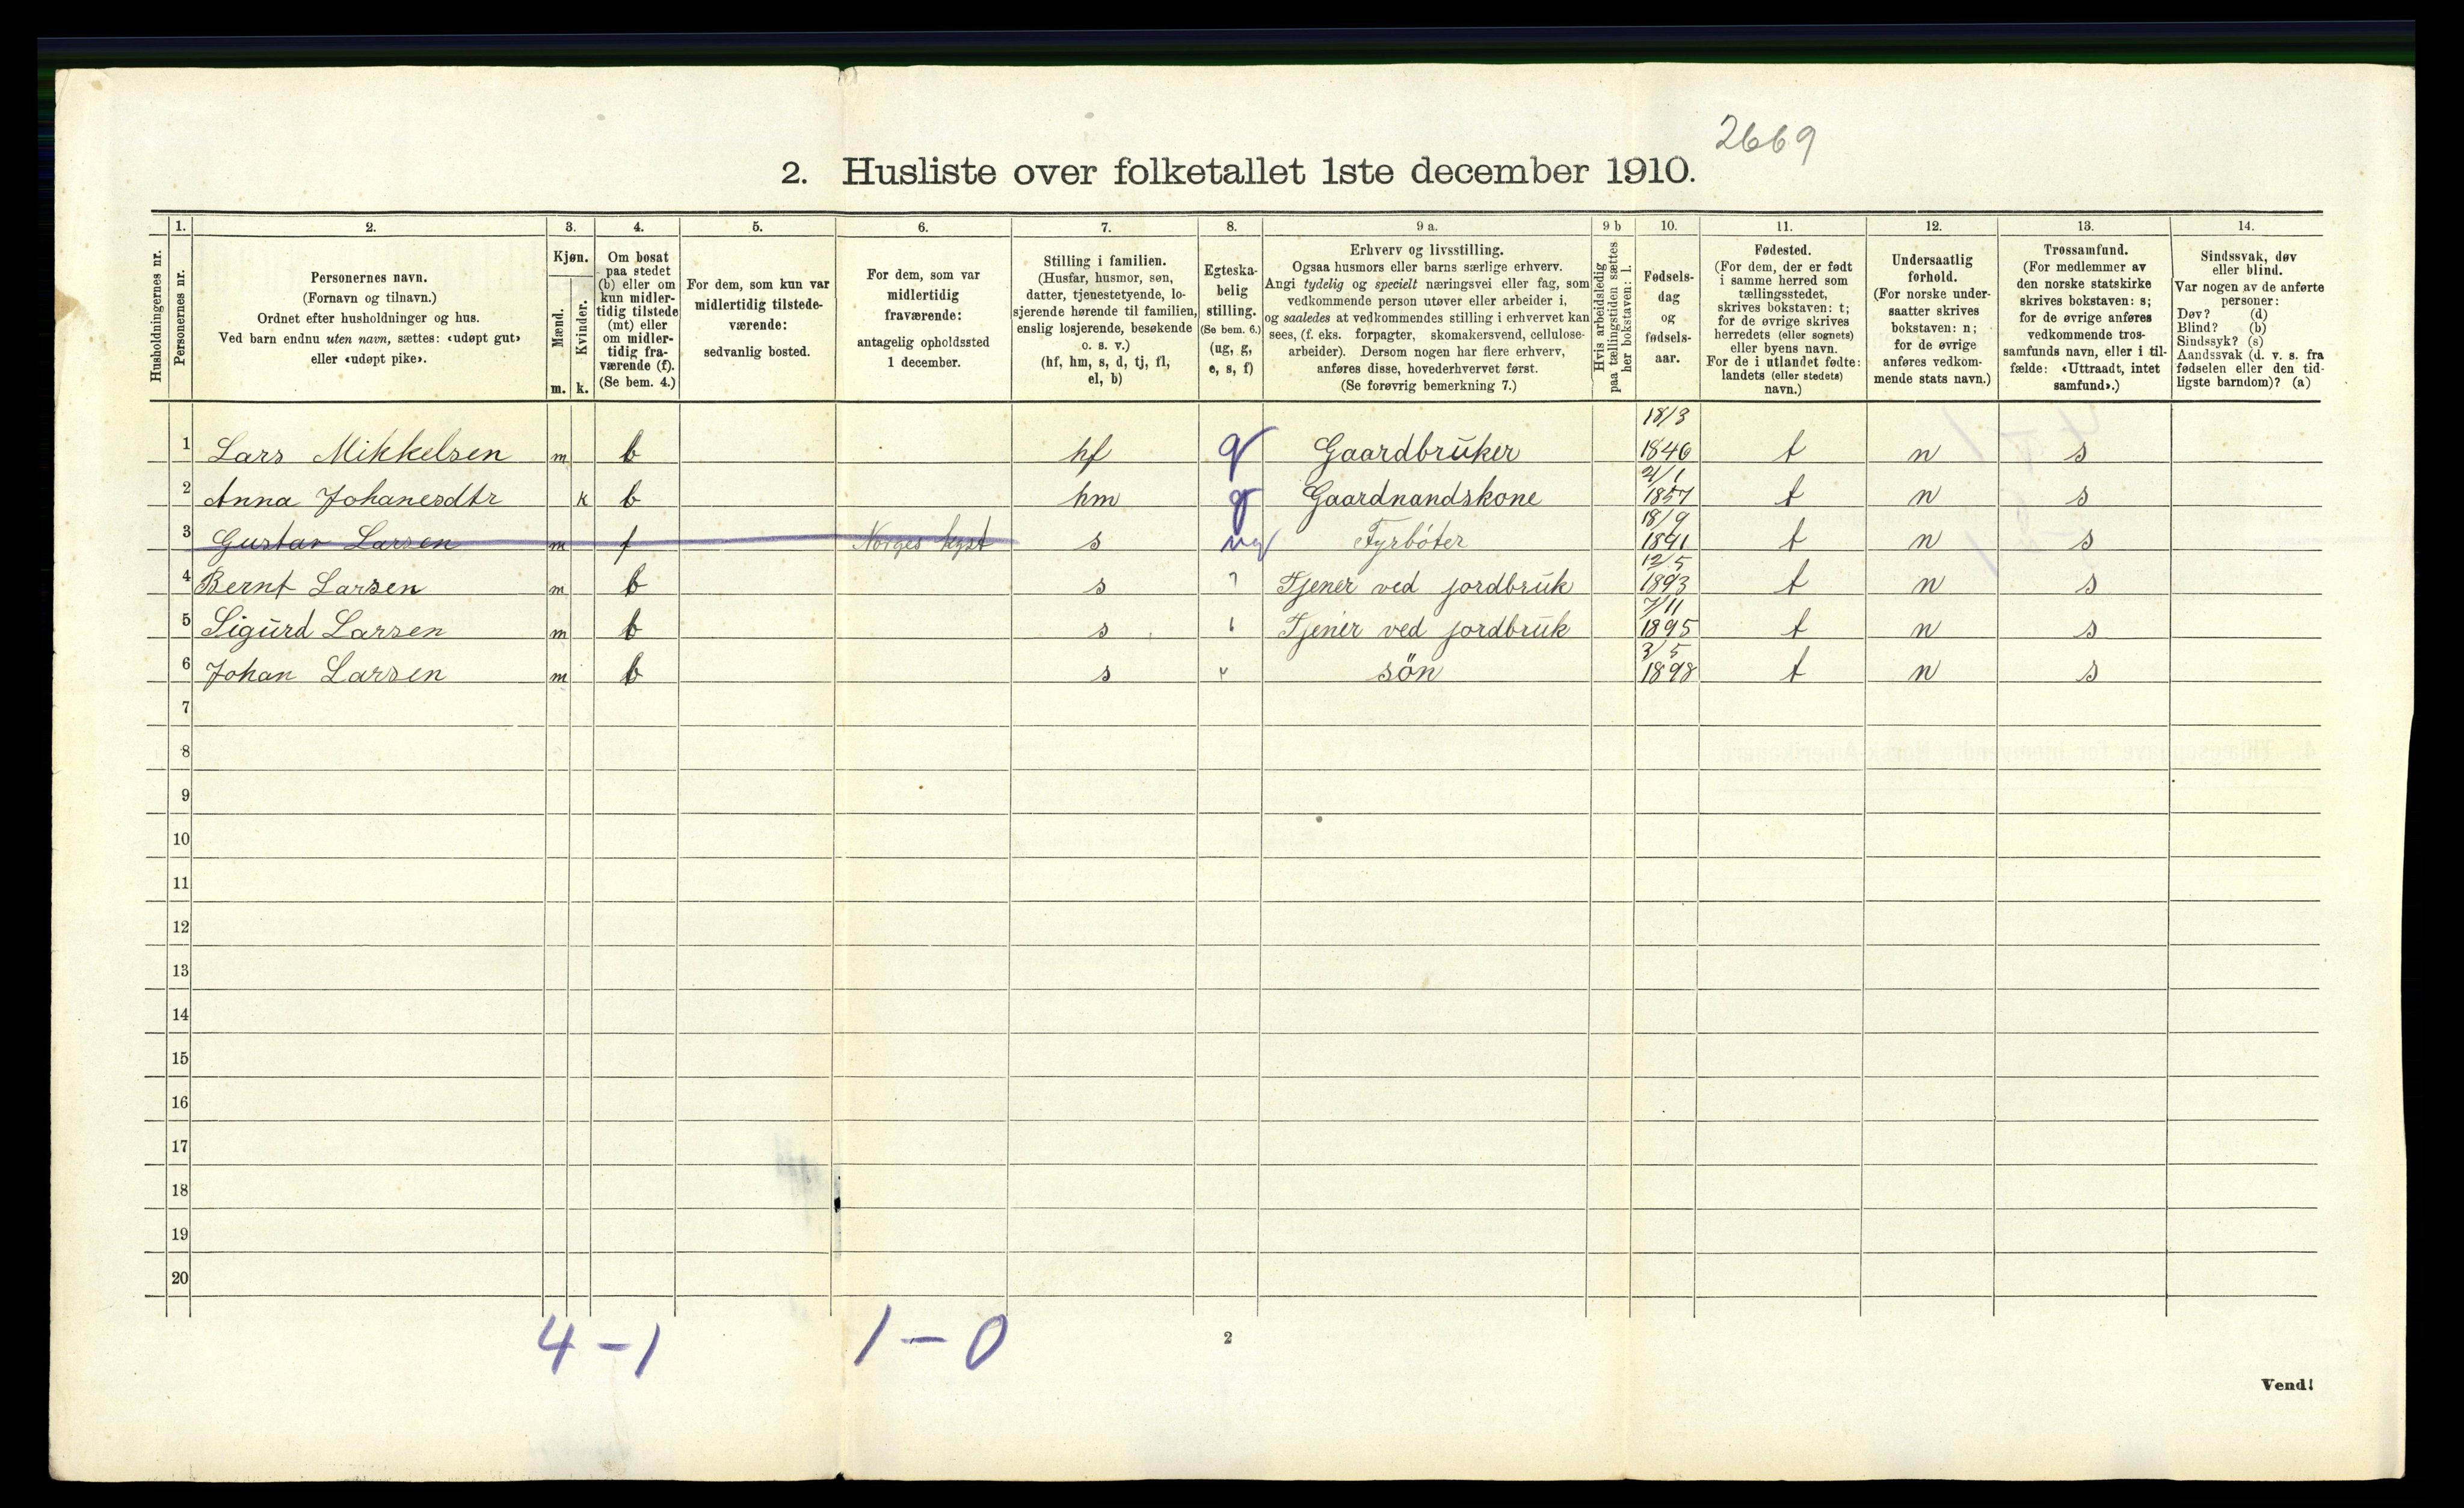 2669
2. Husliste over folketallet 1ste december 1910.
Husholdningernes nr.
1.
Personernes nr.
2.
Personernes navn.
(Fornavn og tilnavn.)
Ordnet efter husholdninger og hus.
Ved barn endnu uten navn, sættes: «udøpt gut»
eller «udøpt pike».
3.
Kjøn.
Mænd.
Kvinder.
m. k.
4.
Om bosat
paa stedet
(b) eller om
kun midler-
tidig tilstede
(mt) eller
om midler-
tidig fra-
værende (f).
(Se bem. 4.)
5.
For dem, som kun var
midlertidig tilstede-
værende:
sedvanlig bosted.
6.
For dem, som var
midlertidig
fraværende:
antagelig opholdssted
1 december.
7.
Stilling i familien.
(Husfar, husmor, søn,
datter, tjenestetyende, lo-
sjerende hørende til familien,
enslig losjerende, besøkende
o. s. v.)
(hf, hm, s, d, tj, fl,
el, b)
8.
Egteska-
belig
stilling.
(Se bem. 6.)
(ug, g,
e, s, f)
9 a.
Erhverv og livsstilling.
Ogsaa husmors eller barns særlige erhverv.
Angi tydelig og specielt næringsvei eller fag, som
vedkommende person utøver eller arbeider i,
og saaledes at vedkommendes stilling i erhvervet kan
sees, (f. eks. forpagter, skomakersvend, cellulose-
arbeider). Dersom nogen har flere erhverv,
anføres disse, hovederhvervet først.
(Se forøvrig bemerkning 7.)
9 b
Hvis arbeidsledig
paa tællingstiden sættes
her bokstaven: l.
10.
Fødsels-
dag
og
fødsels-
aar.
11.
Fødested.
(For dem, der er født
i samme herred som
tællingsstedet,
skrives bokstaven: t;
for de øvrige skrives
herredets (eller sognets)
eller byens navn.
For de i utlandet fødte:
landets (eller stedets)
navn.)
12.
Undersaatlig
forhold.
(For norske under-
saatter skrives
bokstaven: n;
for de øvrige
anføres vedkom-
mende stats navn.)
13.
Trossamfund.
(For medlemmer av
den norske statskirke
skrives bokstaven: s;
for de øvrige anføres
vedkommende tros-
samfunds navn, eller i til-
fælde: «Uttraadt, intet
samfund».)
14.
Sindssvak, døv
eller blind.
Var nogen av de anførte
personer:
Døv? (d)
Blind? (b)
Sindssyk? (s)
Aandssvak (d. v. s. fra
fødselen eller den tid-
ligste barndom)? (a)
1 Lars Mikkelsen m b hf g Gaardbruker 18/3 1846 t n s
2 Anna Johanesdtr k b hm g Gaardnandskone 1857 t n s
3 Gustav Larsen m f Norges kyst s ug Fyrböter 18/9 1891 t n s
4 Bernt Larsen m b s Tjener ved jordbruk 12/5 1893 t n s
5 Sigurd Larsen m b s Tjener ved jordbruk 7/11 1895 t n s
6 Johan Larsen m b s " sön 3/5 1898 t n s
7
8
9
10
11
12
13
14
15
16
17
18
19
20
4 - 1 1 - 0
2
Vend!